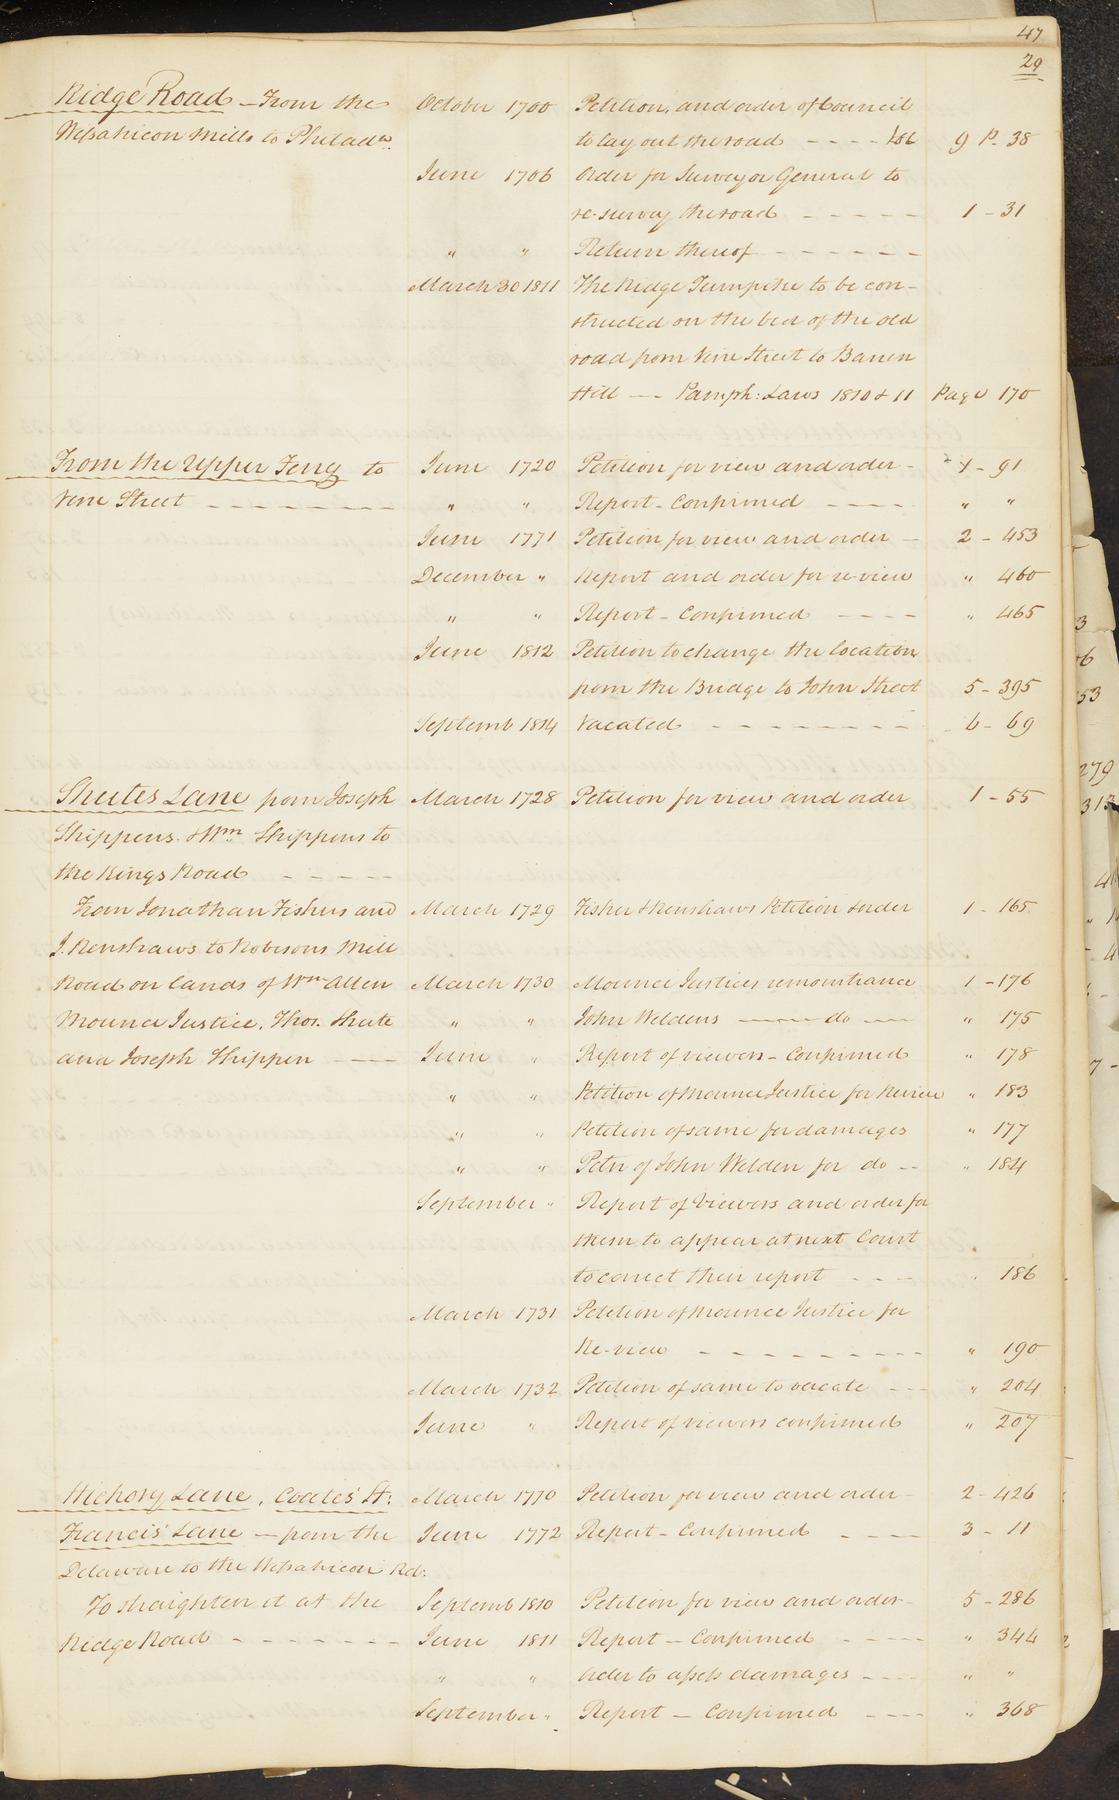 47
29
Ridge Road — From the October 1700 Petition, and order of Council
Wissahicon Mills to Philada. to lay out the road - - - - 9 P. 38
June 1706 Order for Surveyor General to
re-survey the road - - - - - 1 - 31
" " Return thereof - - - - - -
March 30 1811 The Ridge Turnpike to be con-
structed on the bed of the old
road from Vine Street to Barren
Hill — Pamph: Laws 1810 & 11 Page 170
From the Upper Ferry to June 1720 Petition for view and order - 1 - 91
Vine Street - - - - - - - - " " Report - Confirmed - - - - " "
June 1771 Petition for view and order - 2 - 453
December " Report and order for re-view " 460
" " Report - Confirmed - - - - " 465
June 1812 Petition to change the location
from the Bridge to John Street 5 - 395
Septemb 1814 Vacated - - - - - - - - 6 - 69
Shutes Lane from Joseph March 1728 Petition for view and order 1 - 55
Shippens & Wm Shippens to
the Kings Road - - - - -
From Jonathan Fishers and March 1729 Fisher & Renshaws Petition & order 1 - 165
J. Renshaws to Robesons Mill
Road on lands of Wm Allen March 1730 Mounce Justices remonstrance 1 - 176
Mounce Justice, Thos. Shute " " John Weldens —— do — " 175
and Joseph Shippen —— June " Report of viewers - Confirmed " 178
" " Petition of Mounce Justice for Review " 183
" " Petition of same for damages " 177
" " Petn of John Welden for do -- " 184
September " Report of Viewers and order for
them to appear at next Court
to correct their report - - - " 186
March 1731 Petition of Mounce Justice for
Re-view - - - - - - - - - " 190
March 1732 Petition of same to vacate - - - " 204
June " Report of viewers confirmed " 207
Hickory Lane, Coates' St: March 1770 Petition for view and order - 2 - 426
Francis' Lane — from the June 1772 Report - Confirmed - - - - 3 - 11
Delaware to the Wissahicon Rd:
To straighten it at the Septemb 1810 Petition for view and order - 5 - 286
Ridge Road - - - - - - - June 1811 Report — Confirmed - - - - " 344
" " Order to assess damages - - - - " "
September " Report — Confirmed - - - - " 368